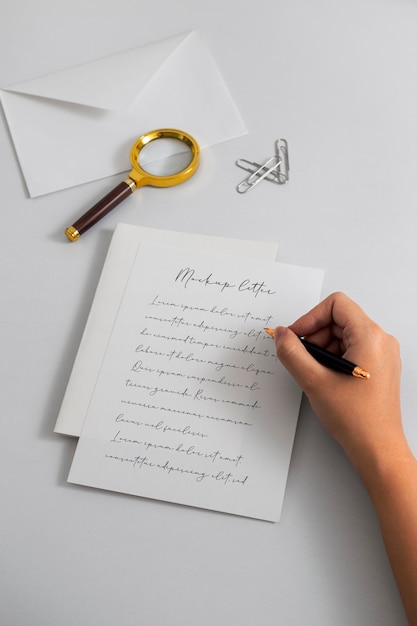 Mockup letter
Lorem ipsum dolor sit amet,
consectetur adipiscing elit,
do eiusmod tempor incididunt
labore et dolore magna aliqua.
Quis ipsum suspendisse ul
trices gravida. Risus commodo
viverra maecenas accumsan
lacus vel facilisis.
Lorem ipsum dolor sit amet,
consectetur adipiscing elit, sed